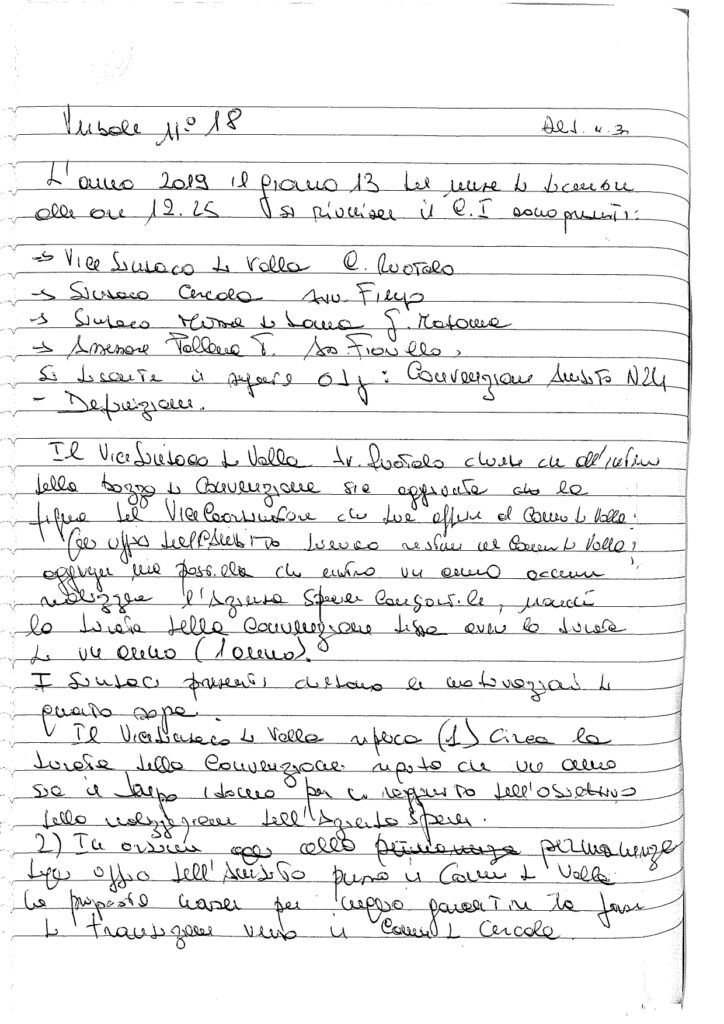 Verbale n° 18
All. n. 3
L'anno 2019 il giorno 13 del mese di dicembre
alle ore 12.25 si riunisce il C.I sono presenti:
→ Vice Sindaco di Volla C. Ruotolo
→ Sindaco Cercola Avv. Fiengo
→ Sindaco Massa di Somma G. Madonna
→ Assessore Pollena T. Fiorillo,
Si discute il seguente Odg: Convenzione Ambito N24
- Definizioni.
Il ViceSindaco di Volla Ruotolo chiede che all'interno
della bozza di Convenzione sia aggiunta che la
figura del ViceCoordinatore che deve essere del Comune di Volla;
Gli uffici dell'Ambito devono restare nel Comune di Volla;
che entro un anno occorre
realizzare l'Azienda Speciale Consortile, nonché
la durata della Convenzione stessa avere la durata
di un anno (1 anno).
I Sindaci presenti chiedono le motivazioni di
quanto sopra.
Il ViceSindaco di Volla replica (1) Circa la
durata della Convenzione reputa che un anno
sia il tempo idoneo per il raggiungimento dell'obiettivo
della realizzazione dell'Azienda Speciale.
2) In ordine alla permanenza
degli uffici dell'Ambito presso il Comune di Volla
la proposta nasce per meglio garantire la fase
di transizione verso il Comune di Cercola